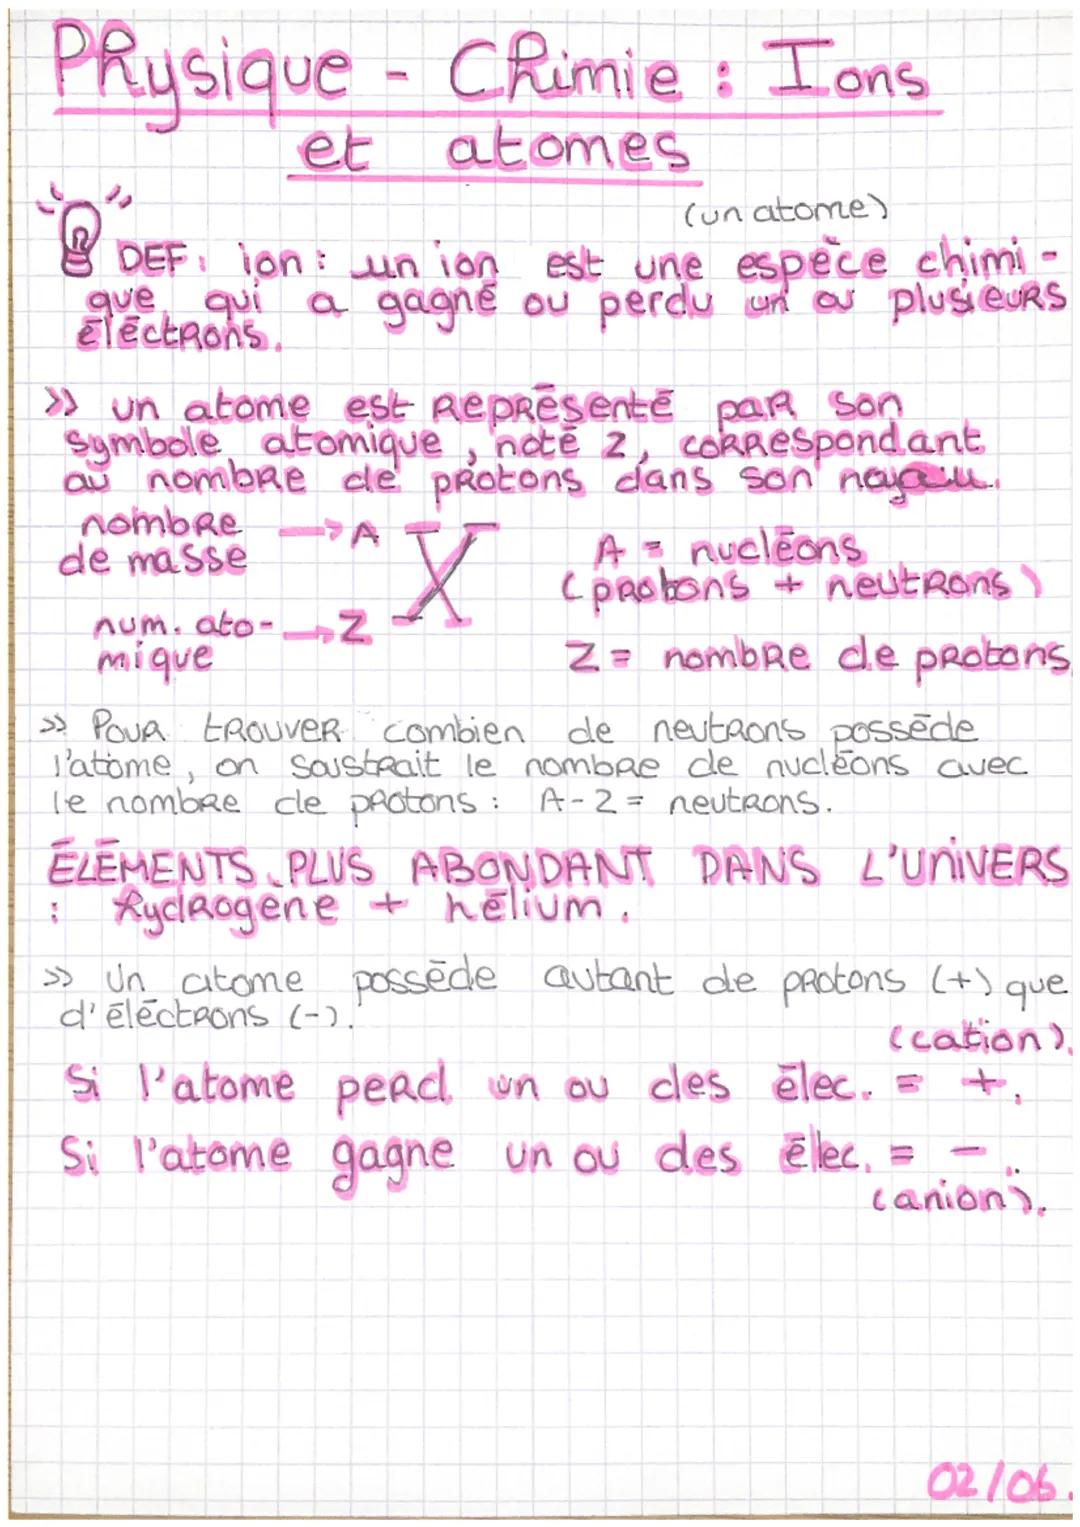 Physique - Chimie : Ions
et atomes
(un atome)
DEF : ion : un ion est une espèce chimi-
que qui a gagné ou perdu un ou plusieurs
électrons.
>> un atome est représenté par son
symbole atomique, noté Z, correspondant
au nombre de protons dans son noyau.
nombre de masse → A
X
num. ato-mique → Z
A = nucléons
(protons + neutrons)
Z = nombre de protons
>> Pour trouver combien de neutrons possède
l'atome, on soustrait le nombre de nucléons avec
le nombre de protons : A-Z = neutrons.
ÉLÉMENTS PLUS ABONDANT DANS L'UNIVERS
: hydrogène + hélium.
>> Un atome possède autant de protons (+) que
d'électrons (-).
(cation).
Si l'atome perd un ou des élec. = +.
Si l'atome gagne un ou des élec. = -.
(anion).
02/06.